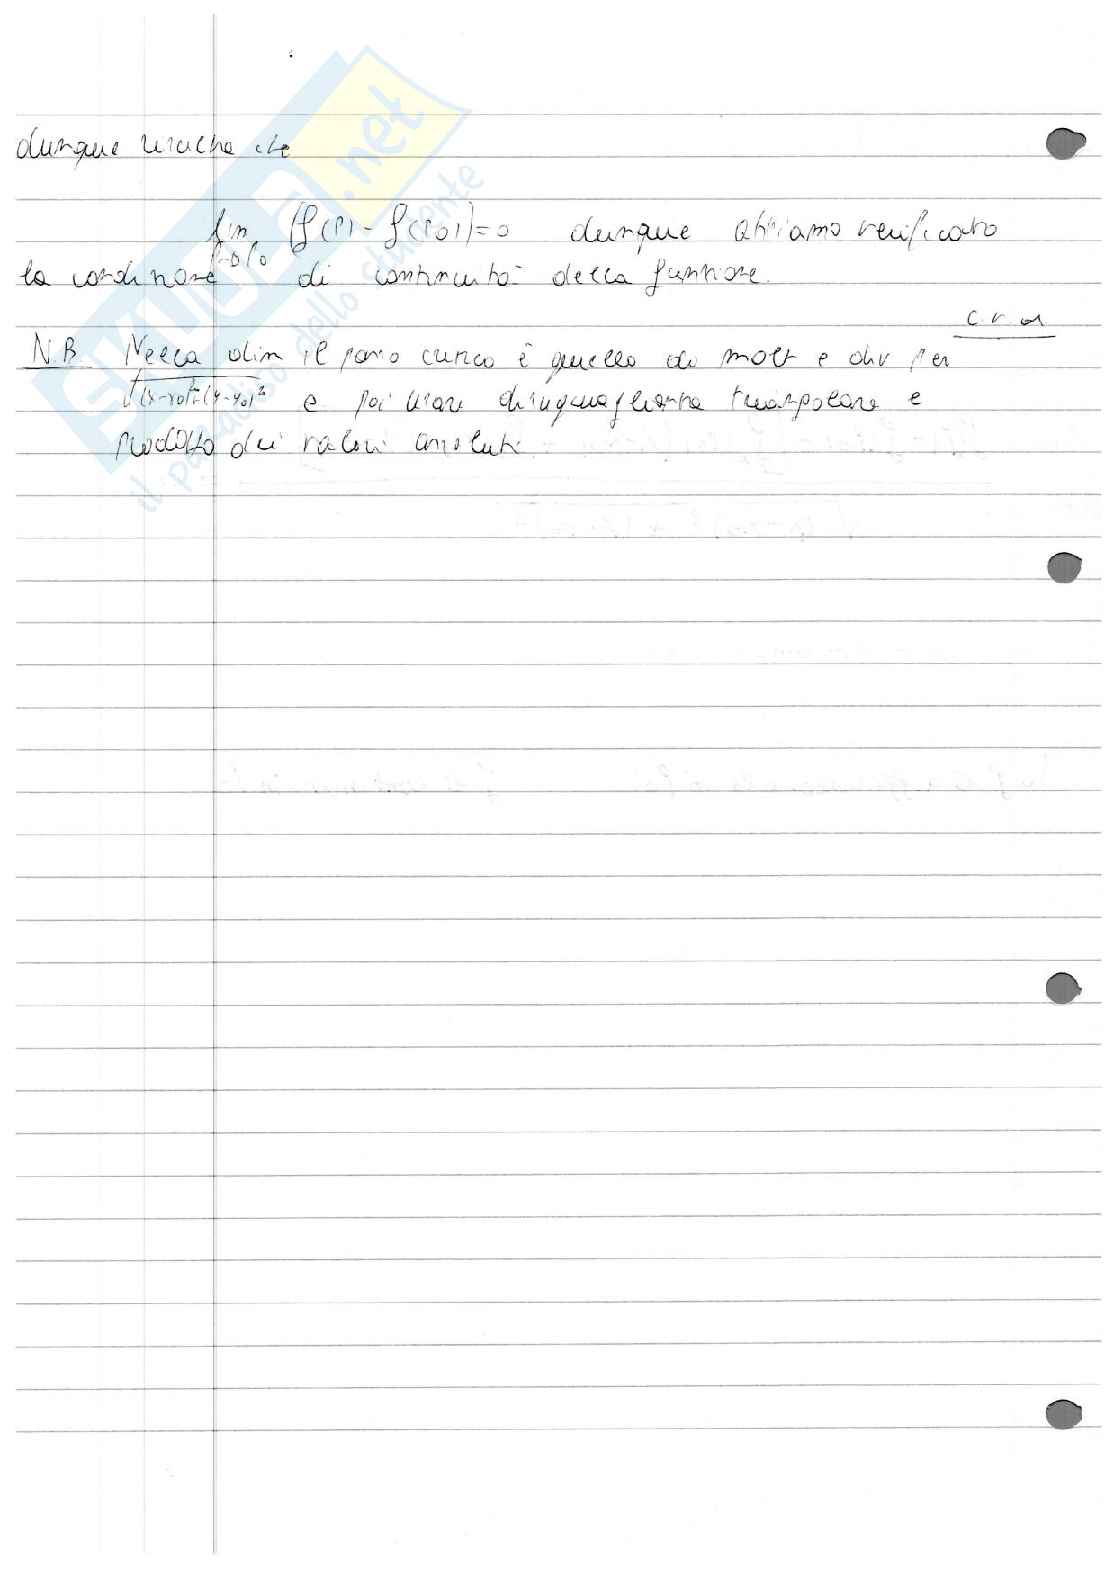 dunque risulta che
lim |f(P) - f(P0)| = 0 dunque abbiamo verificato
P→P0
la condizione di continuità della funzione.
c.v.d
N.B Nella dim il passo cruciale è quello di molt e div per
√(x-x0)²+(y-y0)² e poi usare disuguaglianza triangolare e
prodotto dei valori assoluti
SKUOLA.net
il paradiso dello studente